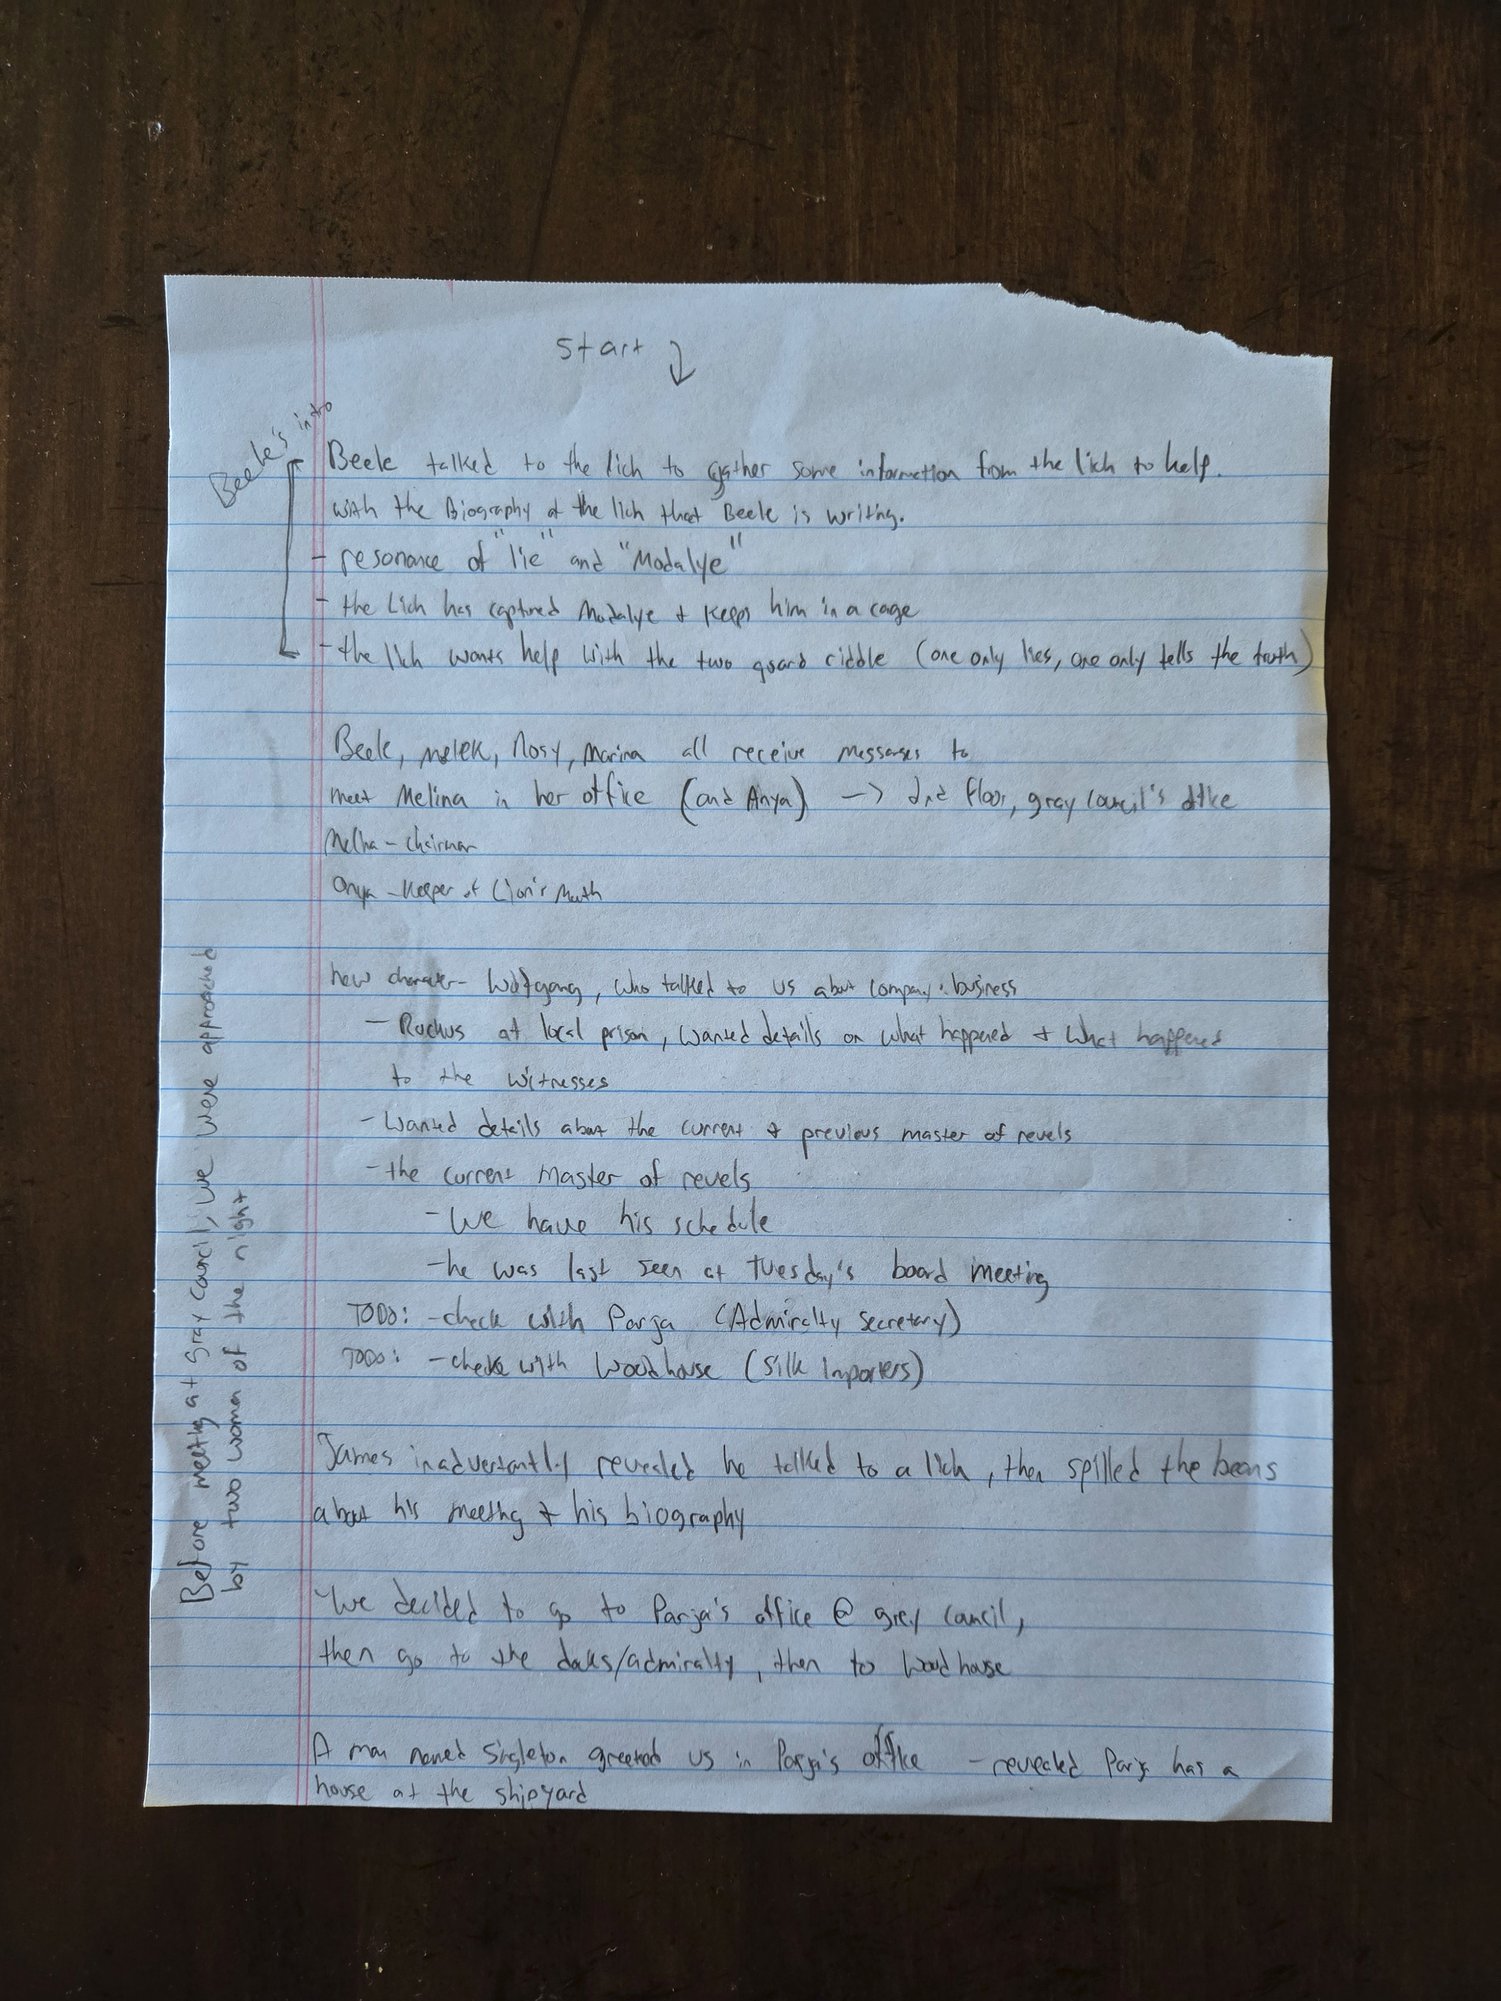 start ↓
Beele's intro
Beele talked to the lich to gather some information from the lich to help
with the Biography of the lich that Beele is writing.
- resonance of "lie" and "Modalye"
- the Lich has captured Modalye + keeps him in a cage
- the lich wants help with the two guard riddle (one only lies, one only tells the truth)
Beele, melek, Rosy, Marina all receive messages to
meet Melina in her office (and Anya) -> 2nd floor, gray council's office
- chairman
Anya - Keeper of Lion's Mouth
new character - Wolfgang, who talked to us about company business
- Ruckus at local prison, wanted details on what happened + what happened
to the witnesses
- Wanted details about the current + previous master of revels
- the current master of revels
- we have his schedule
- he was last seen at Tuesday's board meeting
TODO: - check with Parja (Admiralty Secretary)
TODO: - check with Woodhouse (Silk Importers)
James inadvertantly revealed he talked to a lich, then spilled the beans
about his meeting + his biography
- We decided to go to Parja's office @ grey council,
then go to the docks/admiralty, then to Woodhouse
A man named Singleton greeted us in Parja's office - revealed Parja has a
house at the shipyard
Before meeting at Gray Council, we were approached
by two woman of the night